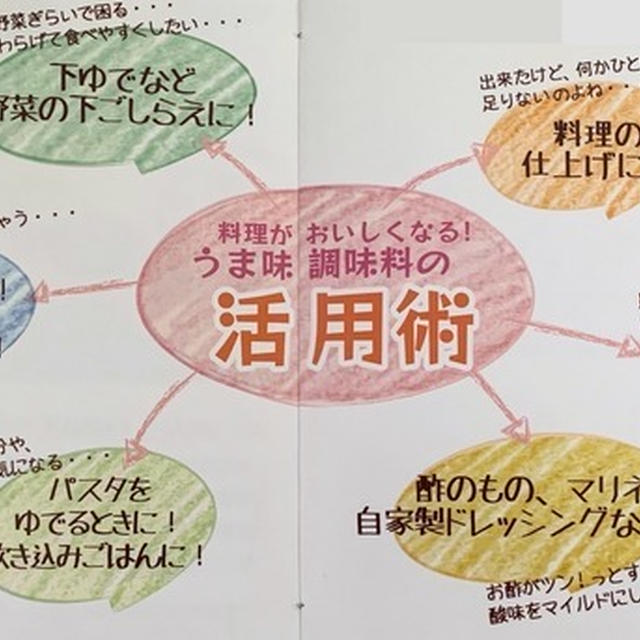 野菜ぎらいで困る・・・
わらげて食べやすくしたい・・・
下ゆでなど
野菜の下ごしらえに!
出来たけど、何かひと
足りないのよね・・
料理の
仕上げに
ゃう・・・
料理が おいしくなる!
うま味 調味料の
活用術
!
分や、
気になる・・・
パスタを
ゆでるときに!
炊き込みごはんに!
酢のもの、マリネ
自家製ドレッシングな
お酢がツン!っとす
酸味をマイルドにし